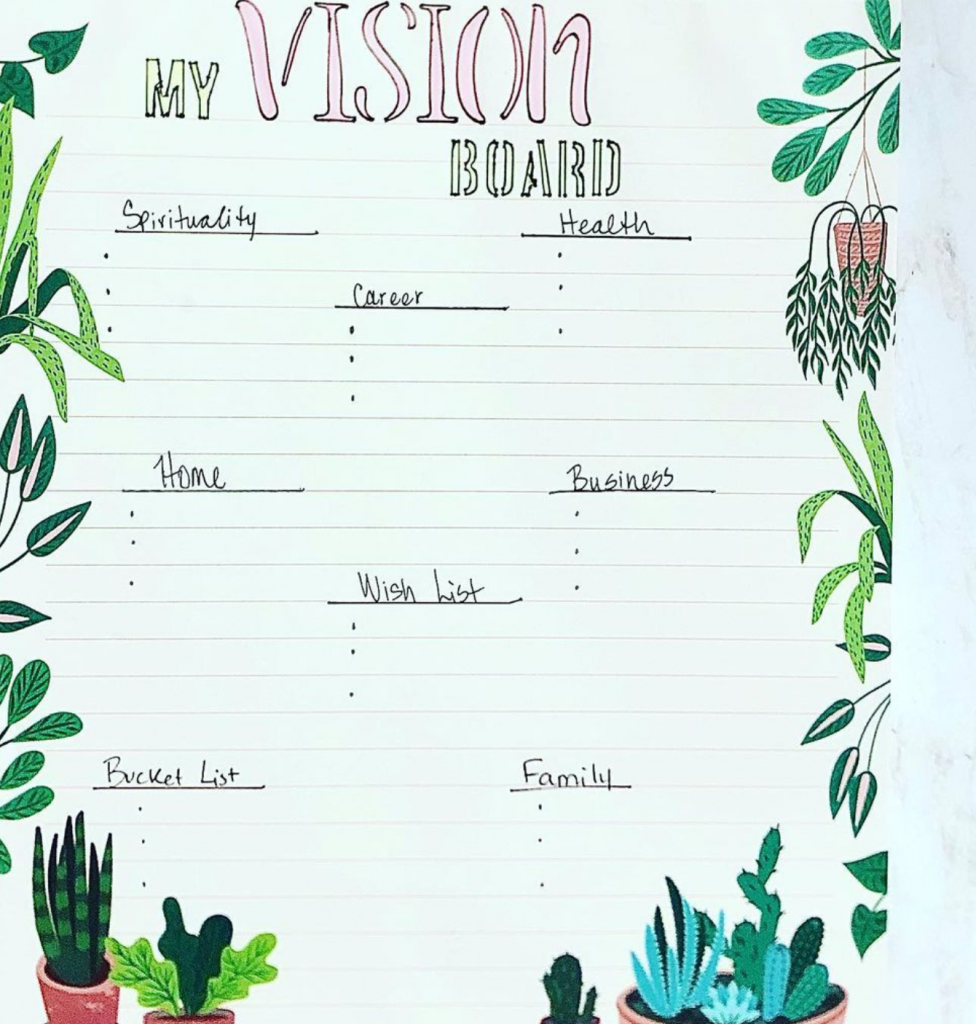 MY VISION
BOARD
Spirituality
Health
Career
Home
Business
Wish List
Bucket List
Family